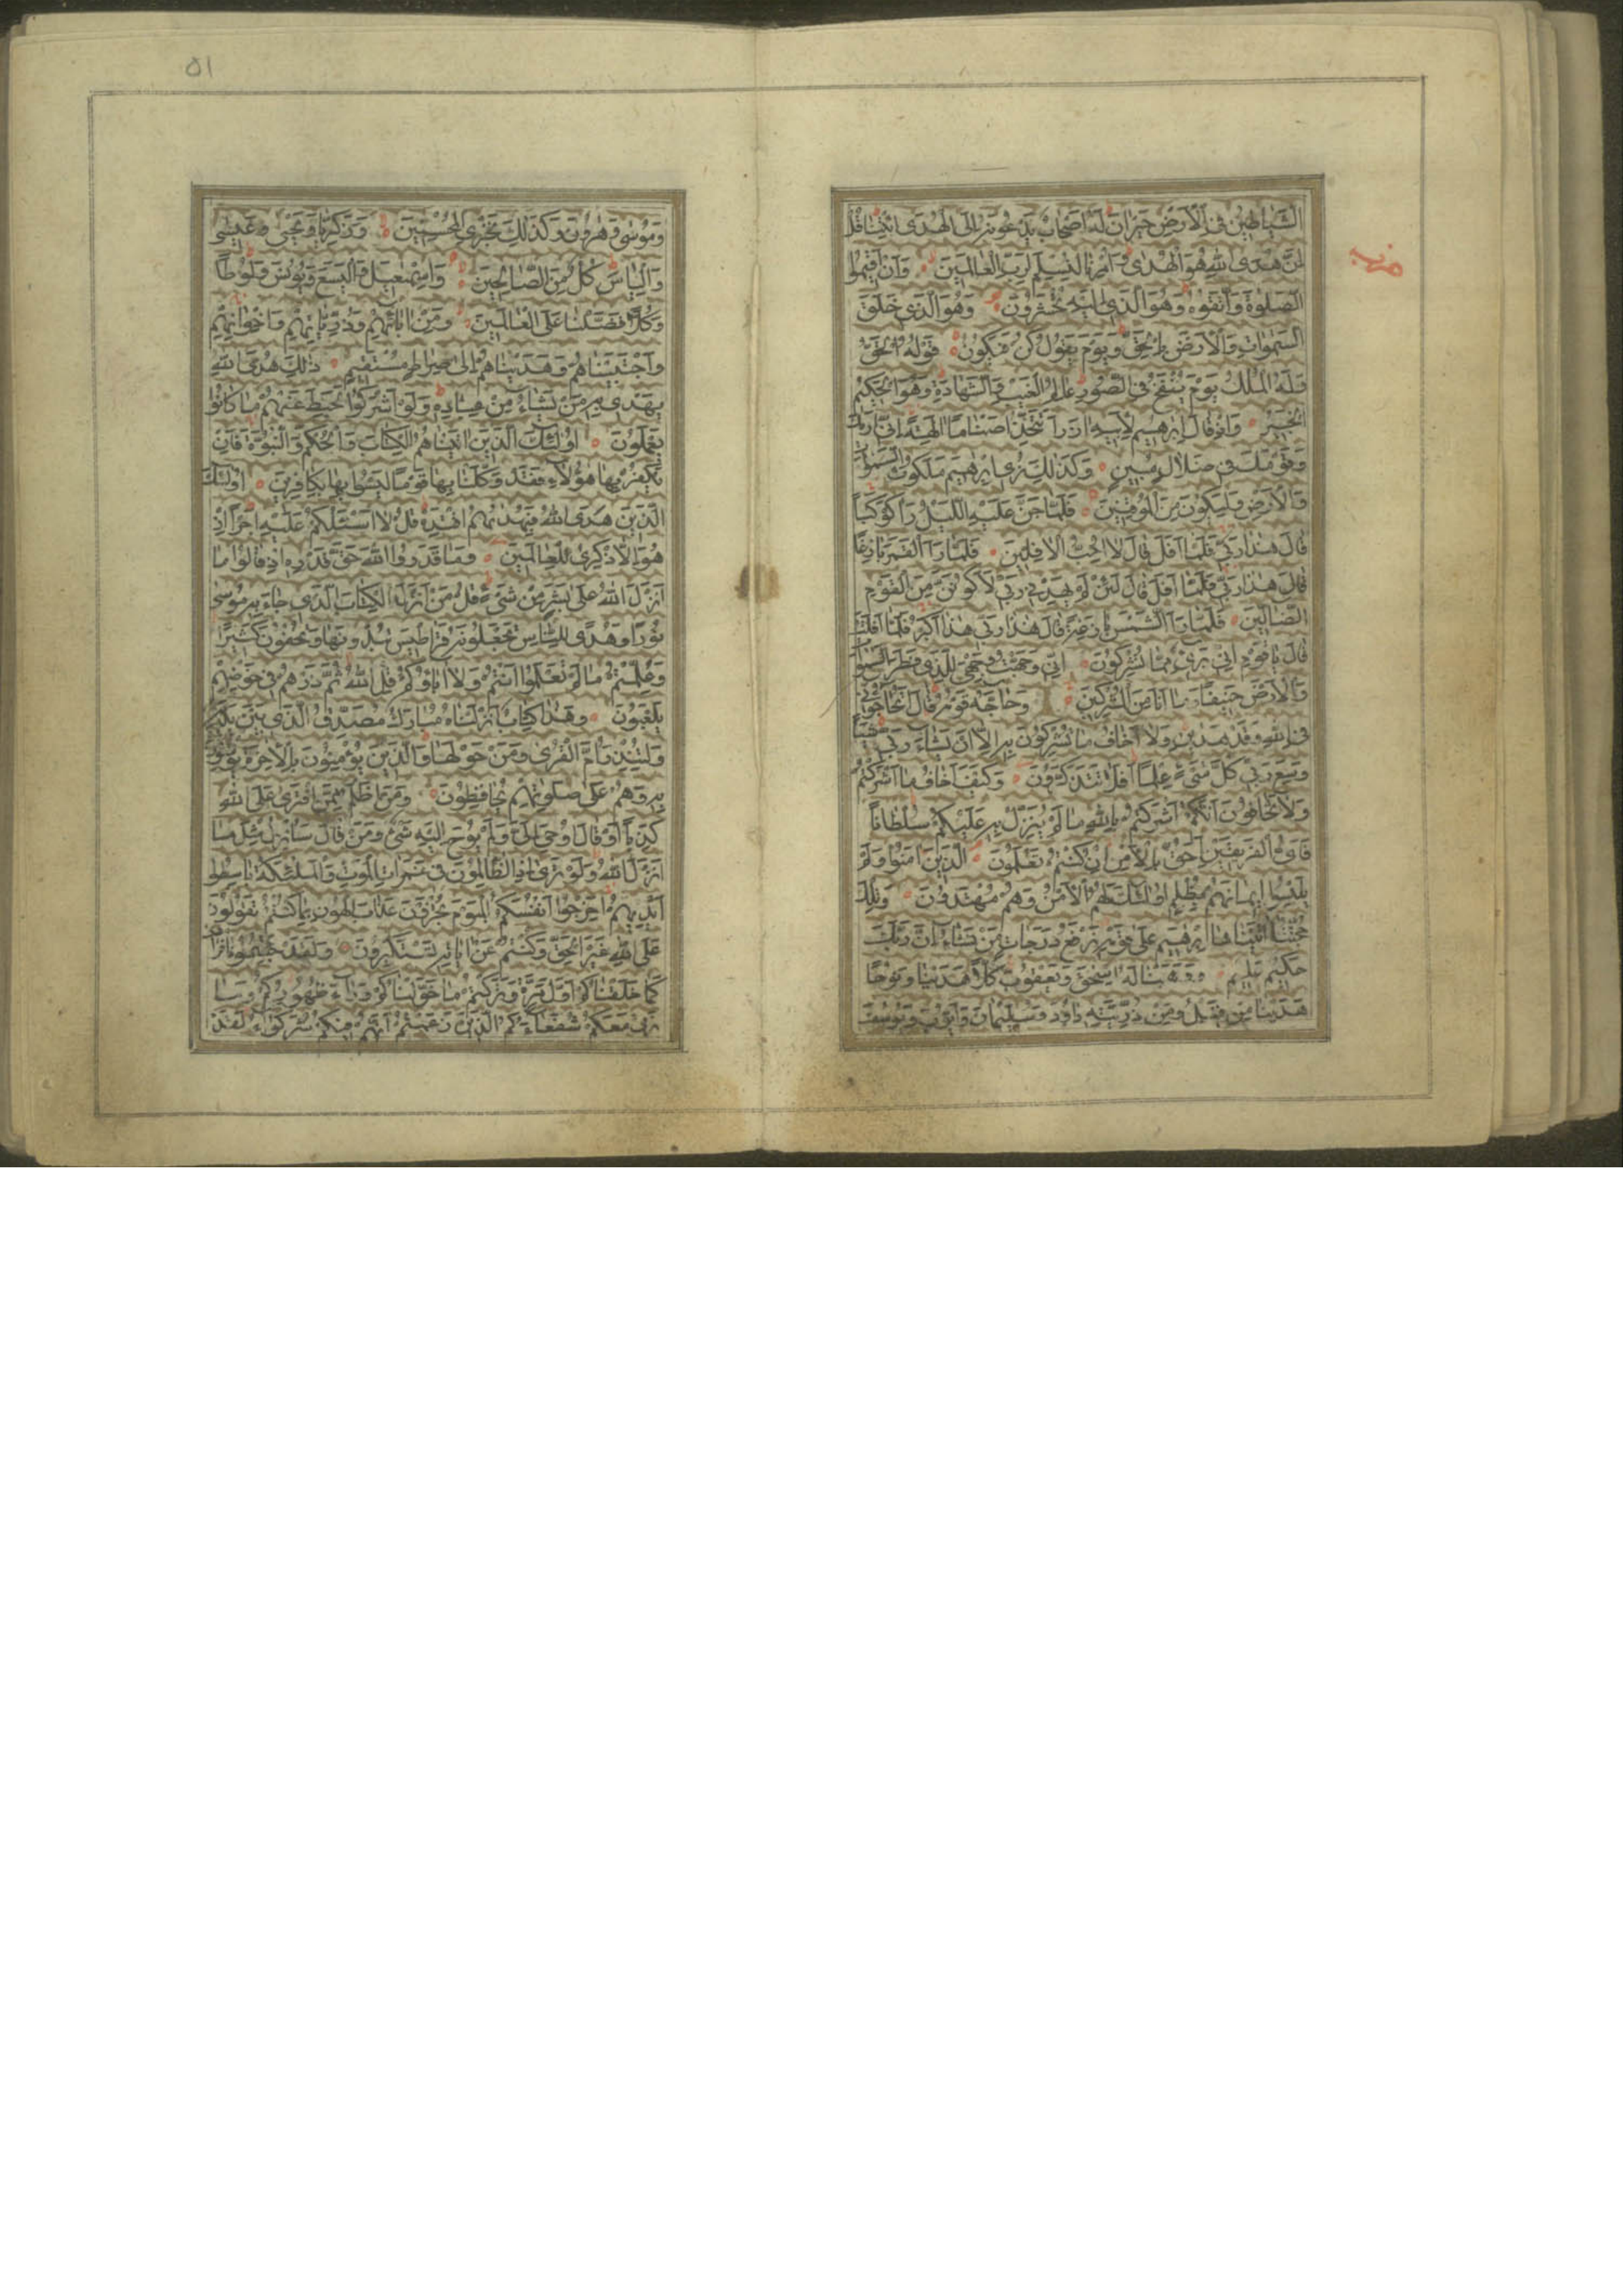 الشَّيَاطِينُ فِي الْأَرْضِ حَيْرَانَ لَهُ أَصْحَابٌ يَدْعُونَهُ إِلَى الْهُدَى ائْتِنَا قُلْ
إِنَّ هُدَى اللَّهِ هُوَ الْهُدَى وَأُمِرْنَا لِنُسْلِمَ لِرَبِّ الْعَالَمِينَ وَأَنْ أَقِيمُوا
الصَّلٰوةَ وَاتَّقُوهُ وَهُوَ الَّذِي إِلَيْهِ تُحْشَرُونَ وَهُوَ الَّذِي خَلَقَ
السَّمٰوَاتِ وَالْأَرْضَ بِالْحَقِّ وَيَوْمَ يَقُولُ كُنْ فَيَكُونُ قَوْلُهُ الْحَقُّ
وَلَهُ الْمُلْكُ يَوْمَ يُنْفَخُ فِي الصُّورِ عَالِمُ الْغَيْبِ وَالشَّهَادَةِ وَهُوَ الْحَكِيمُ
الْخَبِيرُ وَإِذْ قَالَ إِبْرٰهِيمُ لِأَبِيهِ آزَرَ أَتَتَّخِذُ أَصْنَامًا آلِهَةً إِنِّي أَرٰكَ
وَقَوْمَكَ فِي ضَلَالٍ مُبِينٍ وَكَذٰلِكَ نُرِي إِبْرٰهِيمَ مَلَكُوتَ السَّمٰوَاتِ
وَالْأَرْضِ وَلِيَكُونَ مِنَ الْمُوقِنِينَ فَلَمَّا جَنَّ عَلَيْهِ اللَّيْلُ رَأٰ كَوْكَبًا
قَالَ هٰذَا رَبِّي فَلَمَّا أَفَلَ قَالَ لَا أُحِبُّ الْآفِلِينَ فَلَمَّا رَأَ الْقَمَرَ بَازِغًا
قَالَ هٰذَا رَبِّي فَلَمَّا أَفَلَ قَالَ لَئِنْ لَمْ يَهْدِنِي رَبِّي لَأَكُونَنَّ مِنَ الْقَوْمِ
الضَّالِّينَ فَلَمَّا رَأَ الشَّمْسَ بَازِغَةً قَالَ هٰذَا رَبِّي هٰذَا أَكْبَرُ فَلَمَّا أَفَلَتْ
قَالَ يَا قَوْمِ إِنِّي بَرِيءٌ مِمَّا تُشْرِكُونَ إِنِّي وَجَّهْتُ وَجْهِيَ لِلَّذِي فَطَرَ السَّمٰوَاتِ
وَالْأَرْضَ حَنِيفًا وَمَا أَنَا مِنَ الْمُشْرِكِينَ وَحَاجَّهُ قَوْمُهُ قَالَ أَتُحَاجُّونِّي
فِي اللَّهِ وَقَدْ هَدٰينِ وَلَا أَخَافُ مَا تُشْرِكُونَ بِهِ إِلَّا أَنْ يَشَاءَ رَبِّي شَيْئًا
وَسِعَ رَبِّي كُلَّ شَيْءٍ عِلْمًا أَفَلَا تَتَذَكَّرُونَ وَكَيْفَ أَخَافُ مَا أَشْرَكْتُمْ
وَلَا تَخَافُونَ أَنَّكُمْ أَشْرَكْتُمْ بِاللَّهِ مَا لَمْ يُنَزِّلْ بِهِ عَلَيْكُمْ سُلْطَانًا
فَأَيُّ الْفَرِيقَيْنِ أَحَقُّ بِالْأَمْنِ إِنْ كُنْتُمْ تَعْلَمُونَ الَّذِينَ آمَنُوا وَلَمْ
يَلْبِسُوا إِيمَانَهُمْ بِظُلْمٍ أُولٰئِكَ لَهُمُ الْأَمْنُ وَهُمْ مُهْتَدُونَ وَتِلْكَ
حُجَّتُنَا آتَيْنَاهَا إِبْرٰهِيمَ عَلَى قَوْمِهِ نَرْفَعُ دَرَجَاتٍ مَنْ نَشَاءُ إِنَّ رَبَّكَ
حَكِيمٌ عَلِيمٌ وَوَهَبْنَا لَهُ إِسْحٰقَ وَيَعْقُوبَ كُلًّا هَدَيْنَا وَنُوحًا
هَدَيْنَا مِنْ قَبْلُ وَمِنْ ذُرِّيَّتِهِ دَاوُدَ وَسُلَيْمَانَ وَأَيُّوبَ وَيُوسُفَ
حزب
٥١
وَمُوسٰى وَهٰرُونَ وَكَذٰلِكَ نَجْزِي الْمُحْسِنِينَ وَزَكَرِيَّا وَيَحْيٰى وَعِيسٰى
وَإِلْيَاسَ كُلٌّ مِنَ الصَّالِحِينَ وَإِسْمٰعِيلَ وَالْيَسَعَ وَيُونُسَ وَلُوطًا
وَكُلًّا فَضَّلْنَا عَلَى الْعَالَمِينَ وَمِنْ آبَائِهِمْ وَذُرِّيَّاتِهِمْ وَإِخْوَانِهِمْ
وَاجْتَبَيْنَاهُمْ وَهَدَيْنَاهُمْ إِلٰى صِرَاطٍ مُسْتَقِيمٍ ذٰلِكَ هُدَى اللَّهِ
يَهْدِي بِهِ مَنْ يَشَاءُ مِنْ عِبَادِهِ وَلَوْ أَشْرَكُوا لَحَبِطَ عَنْهُمْ مَا كَانُوا
يَعْمَلُونَ أُولٰئِكَ الَّذِينَ آتَيْنَاهُمُ الْكِتَابَ وَالْحُكْمَ وَالنُّبُوَّةَ فَإِنْ
يَكْفُرْ بِهَا هٰؤُلَاءِ فَقَدْ وَكَّلْنَا بِهَا قَوْمًا لَيْسُوا بِهَا بِكَافِرِينَ أُولٰئِكَ
الَّذِينَ هَدَى اللَّهُ فَبِهُدٰيهُمُ اقْتَدِهْ قُلْ لَا أَسْئَلُكُمْ عَلَيْهِ أَجْرًا إِنْ
هُوَ إِلَّا ذِكْرٰى لِلْعَالَمِينَ وَمَا قَدَرُوا اللَّهَ حَقَّ قَدْرِهِ إِذْ قَالُوا مَا
أَنْزَلَ اللَّهُ عَلٰى بَشَرٍ مِنْ شَيْءٍ قُلْ مَنْ أَنْزَلَ الْكِتَابَ الَّذِي جَاءَ بِهِ مُوسٰى
نُورًا وَهُدًى لِلنَّاسِ تَجْعَلُونَهُ قَرَاطِيسَ تُبْدُونَهَا وَتُخْفُونَ كَثِيرًا
وَعُلِّمْتُمْ مَا لَمْ تَعْلَمُوا أَنْتُمْ وَلَا آبَاؤُكُمْ قُلِ اللَّهُ ثُمَّ ذَرْهُمْ فِي خَوْضِهِمْ
يَلْعَبُونَ وَهٰذَا كِتَابٌ أَنْزَلْنَاهُ مُبَارَكٌ مُصَدِّقُ الَّذِي بَيْنَ يَدَيْهِ
وَلِتُنْذِرَ أُمَّ الْقُرٰى وَمَنْ حَوْلَهَا وَالَّذِينَ يُؤْمِنُونَ بِالْآخِرَةِ يُؤْمِنُونَ
بِهِ وَهُمْ عَلٰى صَلَوتِهِمْ يُحَافِظُونَ وَمَنْ أَظْلَمُ مِمَّنِ افْتَرٰى عَلَى اللَّهِ
كَذِبًا أَوْ قَالَ أُوحِيَ إِلَيَّ وَلَمْ يُوحَ إِلَيْهِ شَيْءٌ وَمَنْ قَالَ سَأُنْزِلُ مِثْلَ مَا
أَنْزَلَ اللَّهُ وَلَوْ تَرٰى إِذِ الظَّالِمُونَ فِي غَمَرَاتِ الْمَوْتِ وَالْمَلٰئِكَةُ بَاسِطُوا
أَيْدِيهِمْ أَخْرِجُوا أَنْفُسَكُمُ الْيَوْمَ تُجْزَوْنَ عَذَابَ الْهُونِ بِمَا كُنْتُمْ تَقُولُونَ
عَلَى اللَّهِ غَيْرَ الْحَقِّ وَكُنْتُمْ عَنْ آيَاتِهِ تَسْتَكْبِرُونَ وَلَقَدْ جِئْتُمُونَا فُرَادٰى
كَمَا خَلَقْنَاكُمْ أَوَّلَ مَرَّةٍ وَتَرَكْتُمْ مَا خَوَّلْنَاكُمْ وَرَاءَ ظُهُورِكُمْ وَمَا
نَرٰى مَعَكُمْ شُفَعَاءَكُمُ الَّذِينَ زَعَمْتُمْ أَنَّهُمْ فِيكُمْ شُرَكٰؤُا لَقَدْ